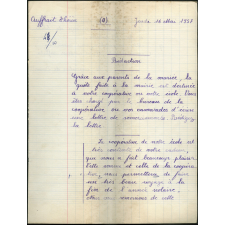 Jeudi 16 Mai 1957
Rédaction
Grâce aux parents de la mariée, la
quête faite à la mairie est destinée
à votre coopérative ou votre école. Vous
êtes chargé par le bureau de la
coopérative ou vos camarades d'écrire
une lettre de
la lettre.
La coopérative de notre école est
très contente de votre
qui nous a fait beaucoup plaisir.
Cette somme et celle de la
nous permettra de faire
un très beau voyage à la
fin de l'année scolaire.
nous vous remercions de cette